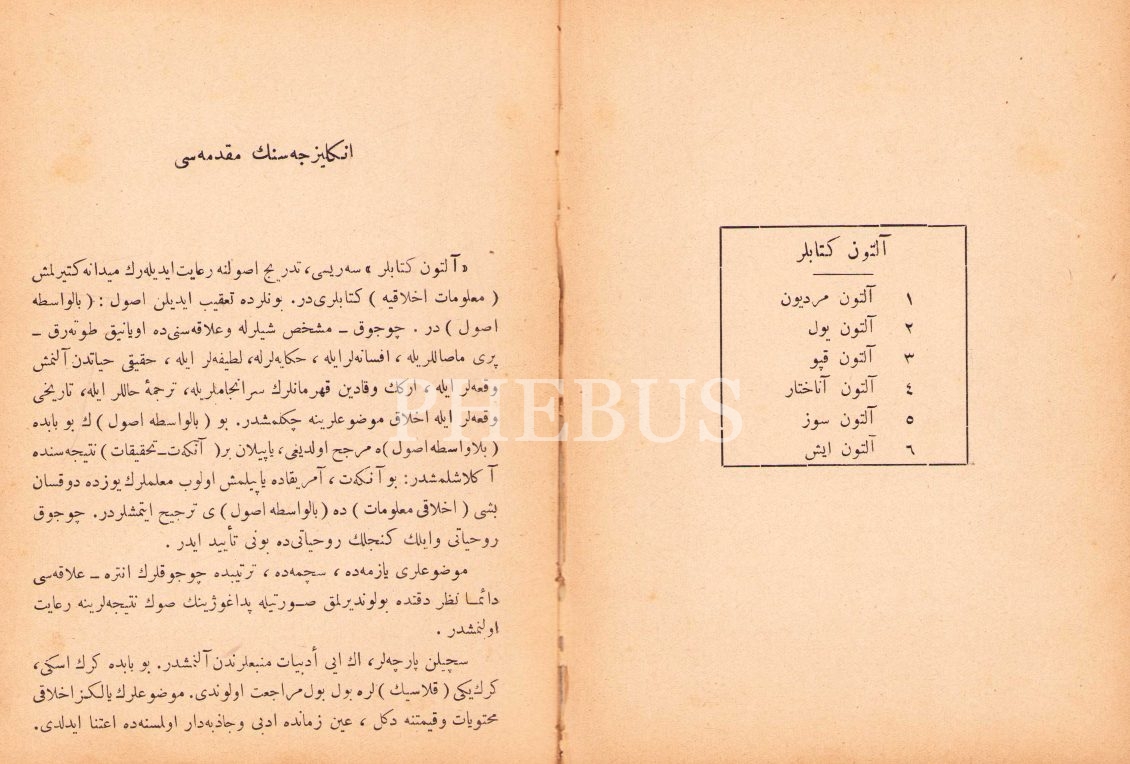 آلتون كتابلر
١ آلتون مرديون
٢ آلتون يول
٣ آلتون قپو
٤ آلتون آناختار
٥ آلتون سوز
٦ آلتون ايش
انكليزجه‌سنك مقدمه‌سى
« آلتون كتابلر » سه‌ريسى، تدريج اصولنه رعايت ايديله‌رك ميدانه كتيرلمش
( معلومات اخلاقيه ) كتابلرى‌در. بونلرده تعقيب ايديلن اصول : ( بالواسطه
اصول ) در . چوجوق ــ مشخص شيلرله وعلاقه‌سنى‌ده اويانيق طوته‌رق ــ
پرى ماصاللريله ، افسانه‌لر ايله ، حكايه‌لرله، لطيفه‌لر ايله ، حقيقى حياتدن آلنمش
وقعه‌لر ايله ، اركك وقادين قهرمانلرك سرانجاملريله، ترجمهٔ حاللر ايله، تاريخى
وقعه‌لر ايله اخلاق موضوعلرينه چكلمشدر. بو ( بالواسطه اصول ) ك بو بابده
( بلاواسطه اصول )ه مرجح اولديغى، ياپيلان بر( آنكه‌ت ـ تحقيقات ) نتيجه‌سنده
آكلاشلمشدر: بو آنكه‌ت ، آمريقاده ياپيلمش اولوب معلملرك يوزده دوقسان
بشى ( اخلاقى معلومات ) ده ( بالواسطه اصول ) ى ترجيح ايتمشلردر. چوجوق
روحياتى وايلك كنجلك روحياتى‌ده بونى تأييد ايدر .
موضوعلرى يازمه‌ده ، سچمه‌ده ، ترتيبده چوجوقلرك انتره ــ علاقه‌سى
دائمـا نظر دقتده بولونديرلمق صـورتيله پداغوژينك صوك نتيجه‌لرينه رعايت
اولنمشدر .
سچيلن پارچه‌لر، اك ايى أدبيات منبعلرندن آلنمشدر. بو بابده كرك اسكى،
كرك يكى ( قلاسيك ) لره بول بول مراجعت اولوندى. موضوعلرك يالكز اخلاقى
محتويات وقيمتنه دكل ، عين زمانده ادبى وجاذبه‌دار اولمسنه‌ده اعتنا ايدلدى.
PHEBUS